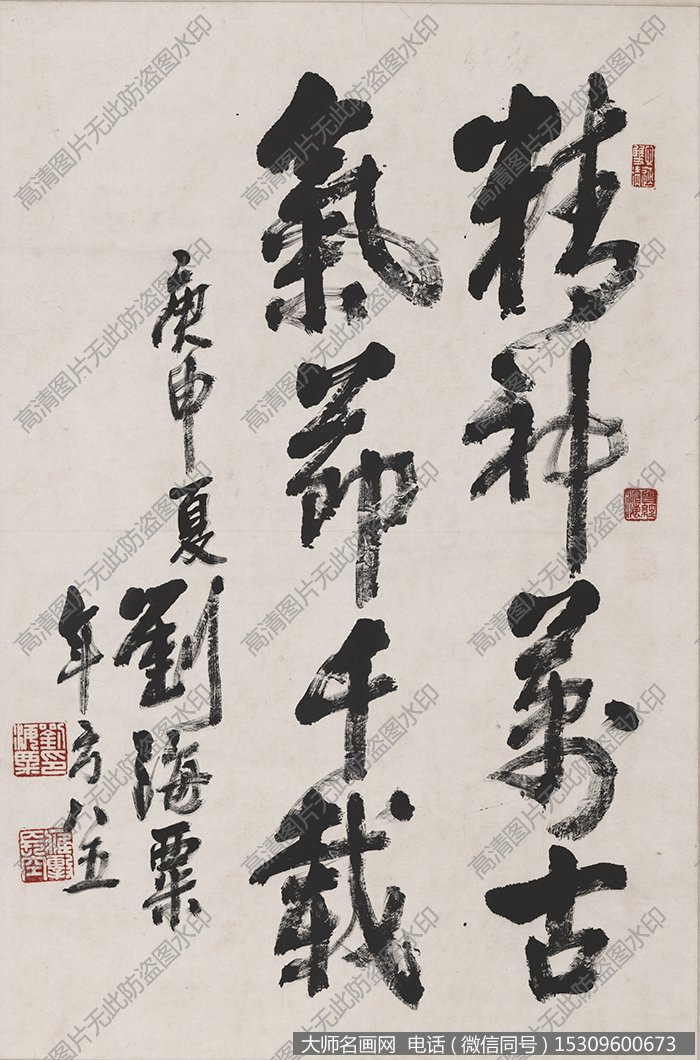 精神萬古
氣節千載
庚申夏
劉海粟
年方八五
劉海粟印
高清图片无此防盗图水印
大师名画网 电话（微信同号）15309600673